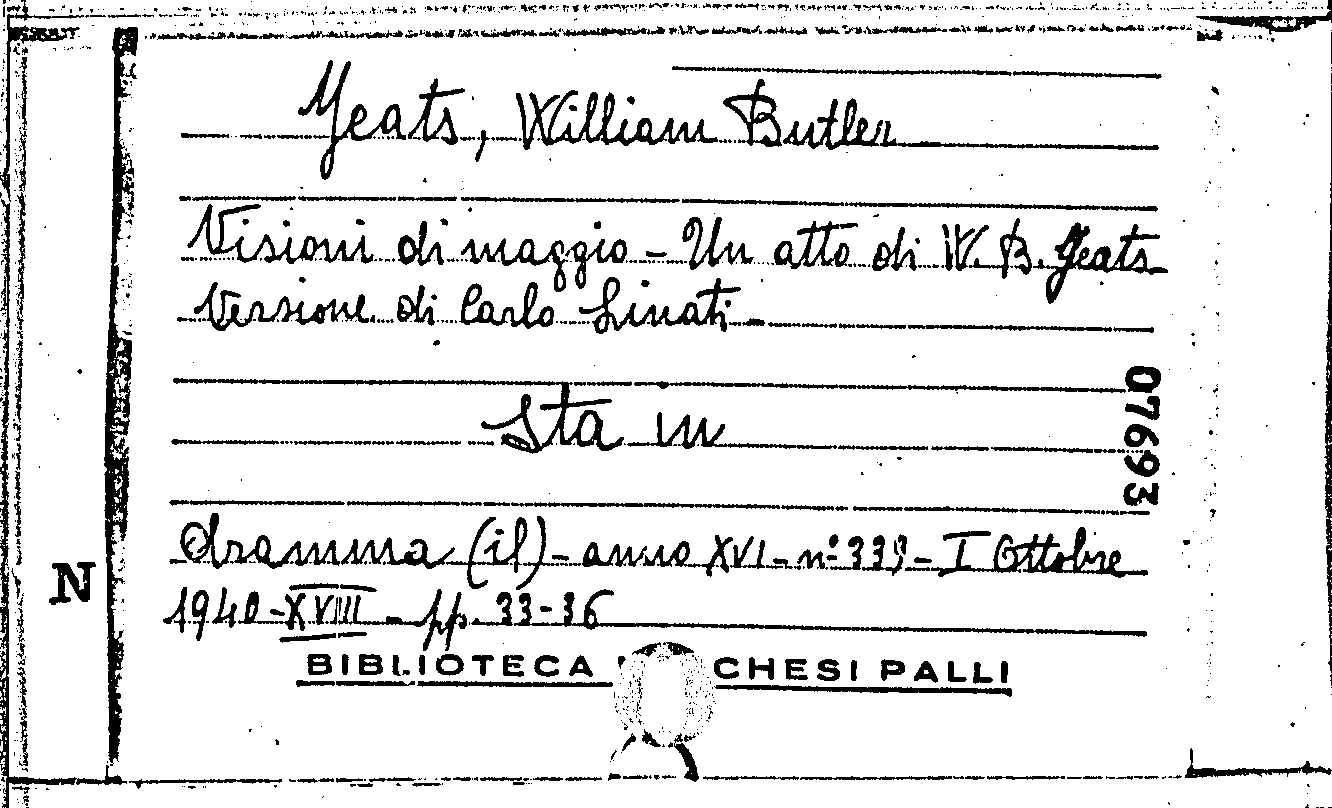 Yeats, William Butler
Visioni di maggio - Un atto di W. B. Yeats
Versione di Carlo Linati -
07693
Sta in
Dramma (il) - anno XVI - nº 339 - I Ottobre
N
1940 - XVIII - pp. 33-36
BIBLIOTECA CHESI PALLI